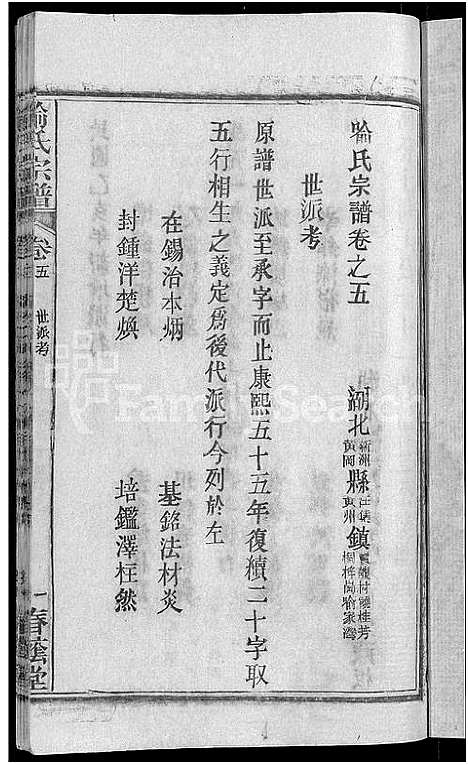 喻氏宗譜卷之五
湖北 新洲 黃岡 縣 汪集 黃州 鎮 曉桂芳 喻家灣
世派考
原譜世派至承字而止康熙五十五年復續二十字取
五行相生之義定為後代派行今列於左
在錫治本炳 基銘法材炎
封鍾洋楚煥 培鑑澤枉然
喻氏宗譜
卷五
世派考
一
春蔭堂
FamilySearch